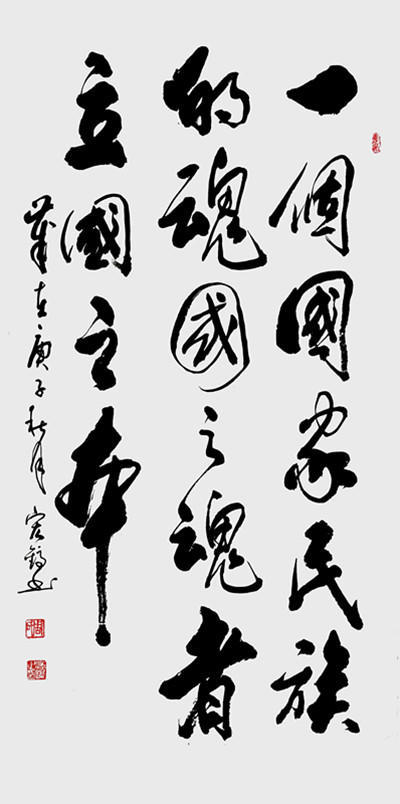 一個國家民族
的魂國之魂者
立國之本
歲在庚子秋月宏书